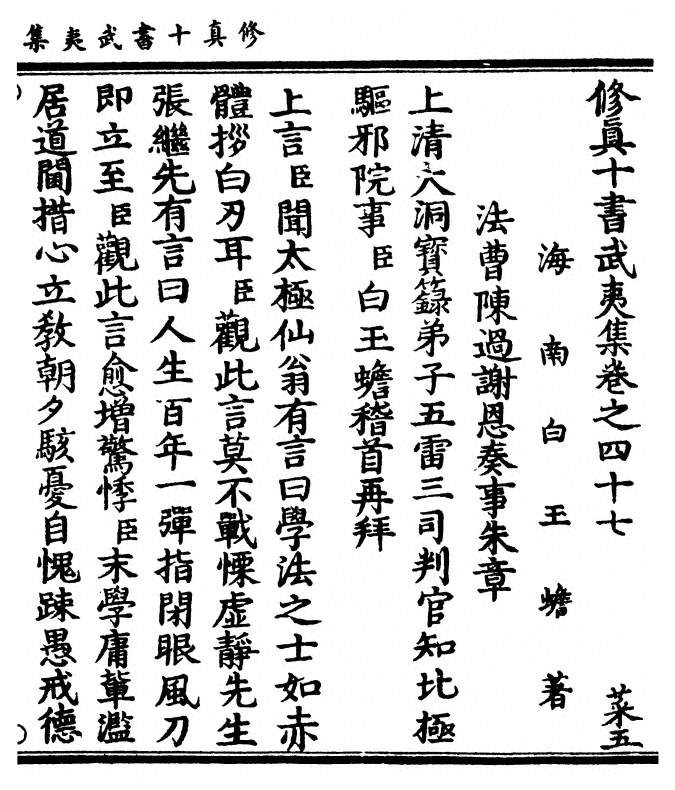 修真十書武夷集
修真十書武夷集卷之四十七　菜五
海南白玉蟾著
法曹陳過謝恩奏事朱章
上清大洞寶籙弟子五雷三司判官知北極
驅邪院事臣白玉蟾稽首再拜
上言臣聞太極仙翁有言曰學法之士如赤
體拶白刃耳臣觀此言莫不戰慄虛靜先生
張繼先有言曰人生百年一彈指閉眼風刀
即立至臣觀此言愈增驚悸臣末學庸輩濫
居道閫措心立敎朝夕駭憂自愧踈愚戒德